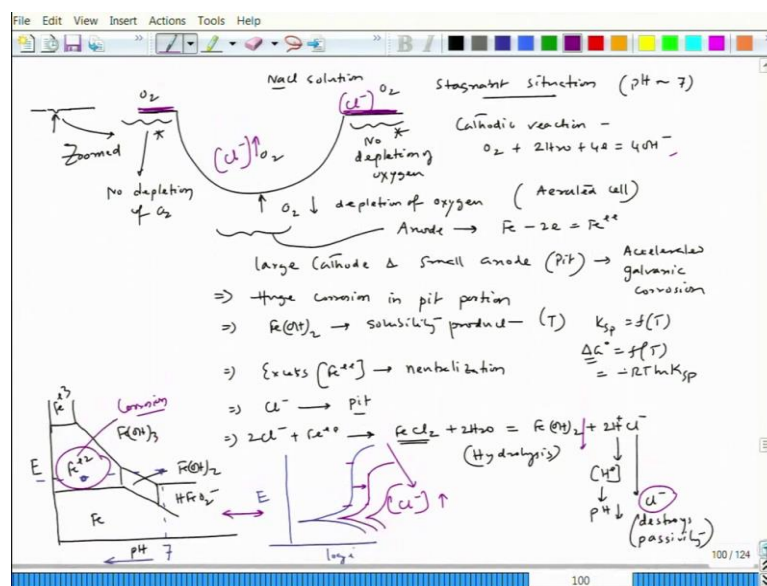 File Edit View Insert Actions Tools Help
NaCl solution
O2
(Cl-) O2
Stagnant situation (pH ~ 7)
Zoomed
*
*
[Cl-]↑ O2
No depletion of oxygen
Cathodic reaction -
O2 + 2H2O + 4e = 4OH-
No depletion
of O2
↑ O2 ↓ depletion of oxygen (Aerated cell)
Anode → Fe - 2e = Fe++
large Cathode & small anode (Pit) → Accelerated
galvanic
corrosion
⇒ Huge corrosion in pit portion
⇒ Fe(OH)2 → solubility product - (T) Ksp = f(T)
ΔG° = f(T)
= -RTlnKsp
⇒ Excess [Fe++] → neutralization
⇒ Cl- → pit
⇒ 2Cl- + Fe++ → FeCl2 + 2H2O = Fe(OH)2↓ + 2H+Cl-
(Hydrolysis)
[H+]
↓
pH↓
Cl-
(destroys
passivity)
Fe+3
Corrosion
Fe(OH)3
E
Fe+2
Fe(OH)2
HFeO2-
Fe
pH 7
E
[Cl-]↑
log i
100 / 124
100